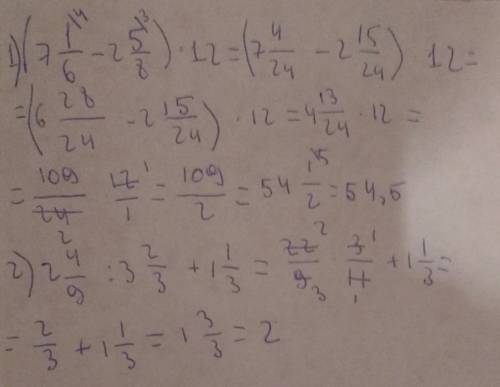 1) (7 1/6 ⁴ − 2 5/8 ³) · 12 = (7 4/24 − 2 15/24) 12 =
= (6 28/24 − 2 15/24) · 12 = 4 13/24 · 12 =
= 109/24 ₂ 12/1 ¹ = 109/2 = 54 1/2 ⁵ = 54,5
2) 2 4/9 : 3 2/3 + 1 1/3 = 22/9 ² ₃ 3/11 ¹ ₁ + 1 1/3 =
= 2/3 + 1 1/3 = 1 3/3 = 2